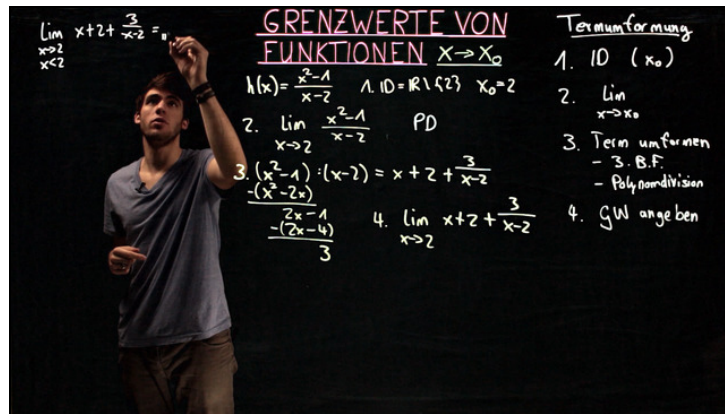 Lim x+2+ 3/(x-2) = "
x→2
x<2
GRENZWERTE VON
FUNKTIONEN x→x₀
h(x)= (x²-1)/(x-2) 1. ID=IR\{2} x₀=2
2. Lim (x²-1)/(x-2) PD
x→2
3. (x²-1):(x-2) = x+2+ 3/(x-2)
-(x²-2x)
2x-1
-(2x-4)
3
4. Lim x+2+ 3/(x-2)
x→2
Termumformung
1. ID (x₀)
2. Lim
x→x₀
3. Term umformen
- 3. B.F.
- Polynomdivision
4. GW angeben